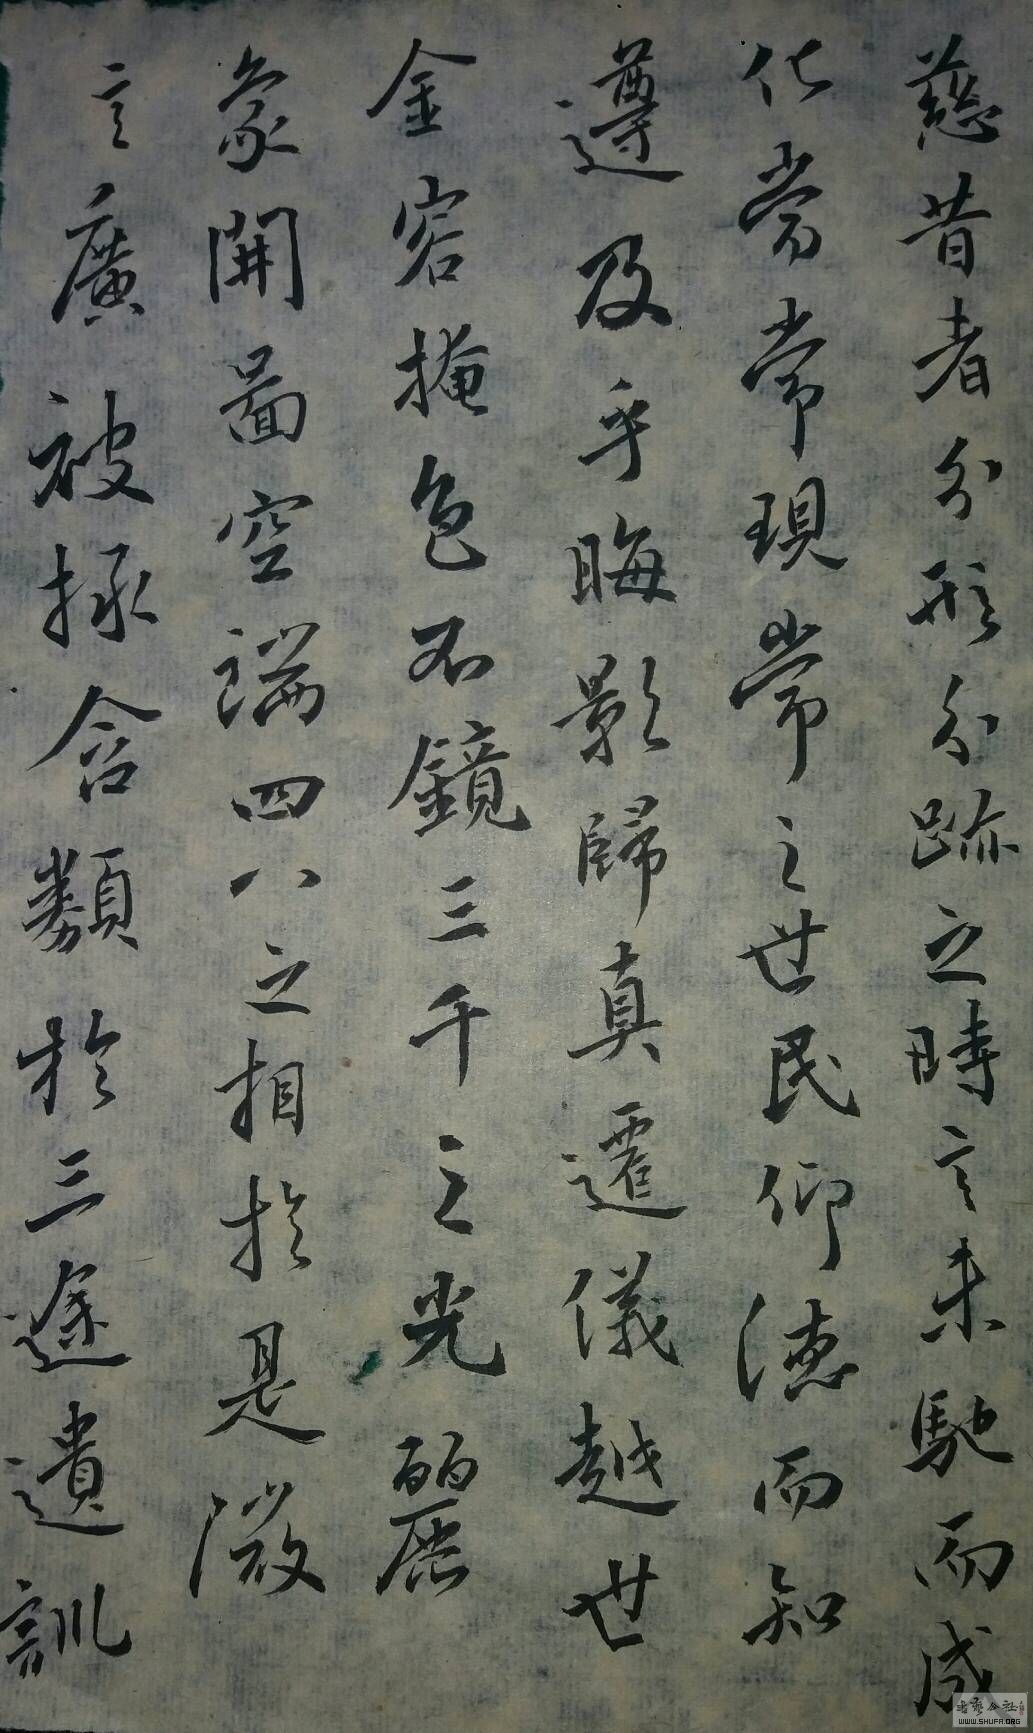 慈昔者分形分跡之時言未馳而成
化當常現常之世民仰德而知
遵及乎晦影歸真遷儀越世
金容掩色不鏡三千之光麗
象開圖空端四八之相於是微
言廣被拯含類於三途遺訓
书艺公社
WWW.SHUFA.ORG